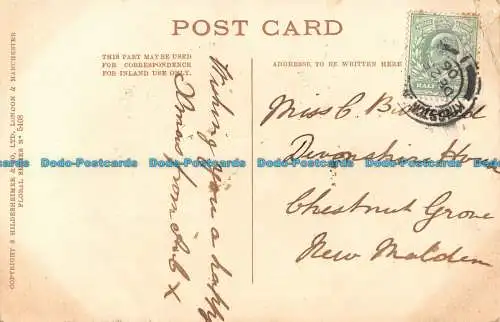 POST CARD
THIS PART MAY BE USED
FOR CORRESPONDENCE
FOR INLAND USE ONLY.
ADDRESS TO BE WRITTEN HERE
COPYRIGHT S. HILDESHEIMER & CO. LTD. LONDON & MANCHESTER
FLORAL SERIES Nº 5408
Wishing you a happy
Xmas from
Miss C.
Devonshire House
Chestnut Grove
New Malden
HALF
Dodo-Postcards Dodo-Postcards Dodo-Postcards Dodo-Postcards Dodo-Postcards
Dodo-Postcards Dodo-Postcards Dodo-Postcards Dodo-Postcards Dodo-Postcards